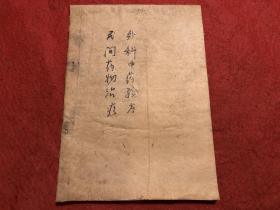 外科中药验方
民间药物治疗